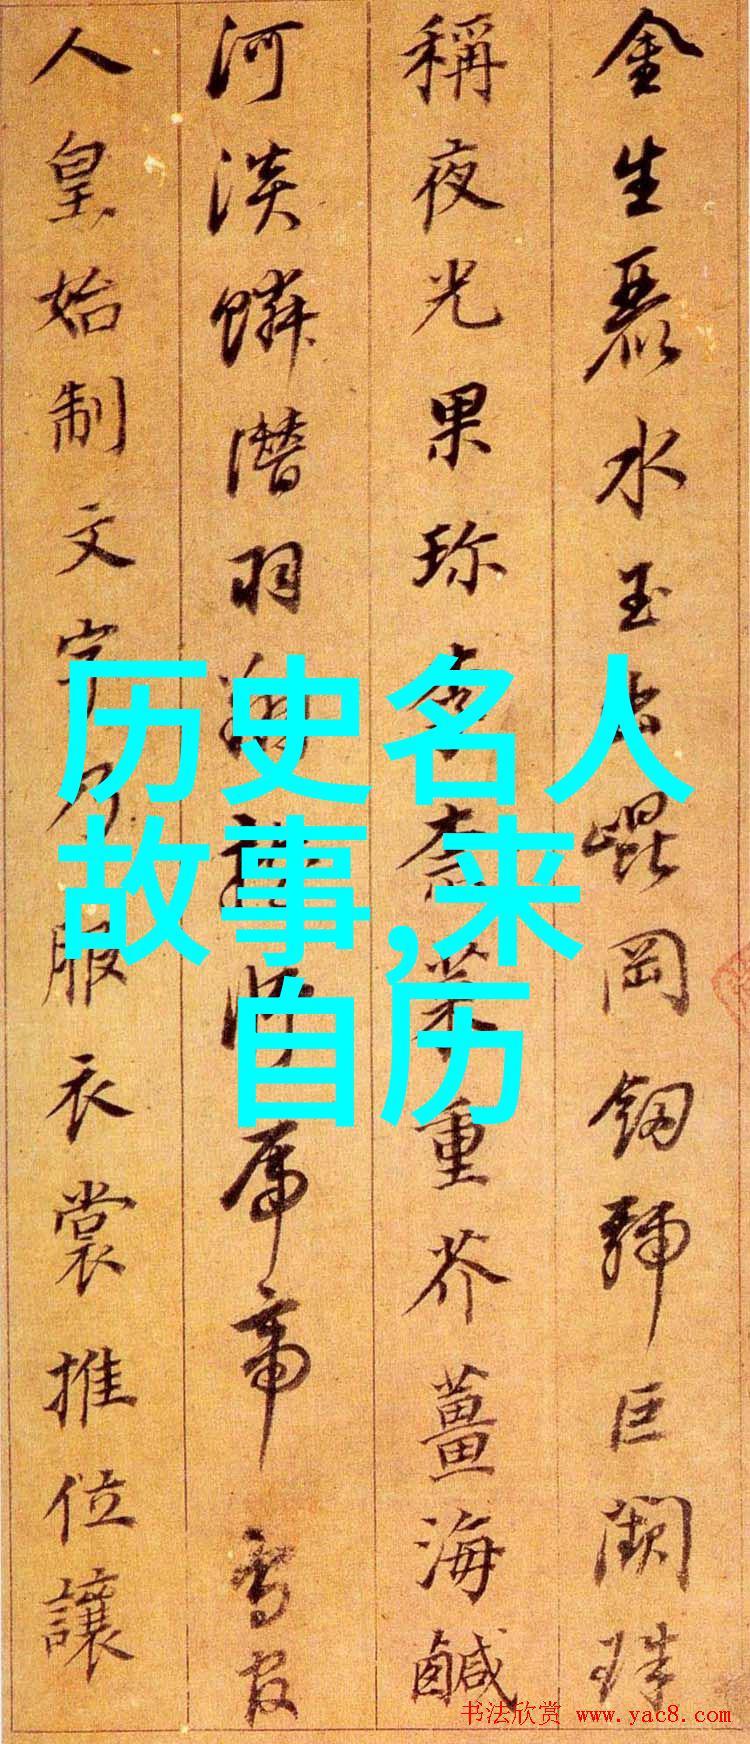 金生麗水玉出崐岡劔號巨闕珠
稱夜光果珎李柰菜重芥薑海鹹
河淡鱗潛羽翔龍師火帝鳥官
人皇始制文字乃服衣裳推位讓
历史名人
故事,来
自历
书法欣赏 www.yac8.com